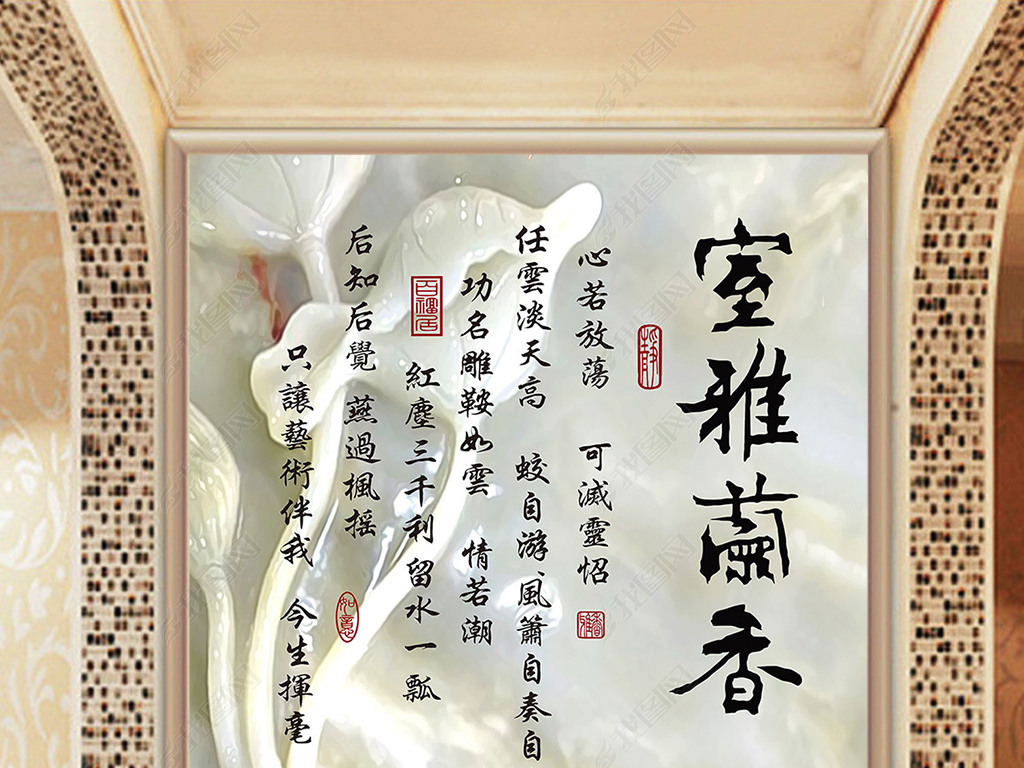 室雅蘭香
静
心若放蕩 可滅靈怊
任雲淡天高 蛟自游、風簫自奏自
功名雕鞍如雲 情若潮
百福居
紅塵三千利留水一瓢
后知后覺 燕過楓摇
如意
只讓藝術伴我 今生揮毫